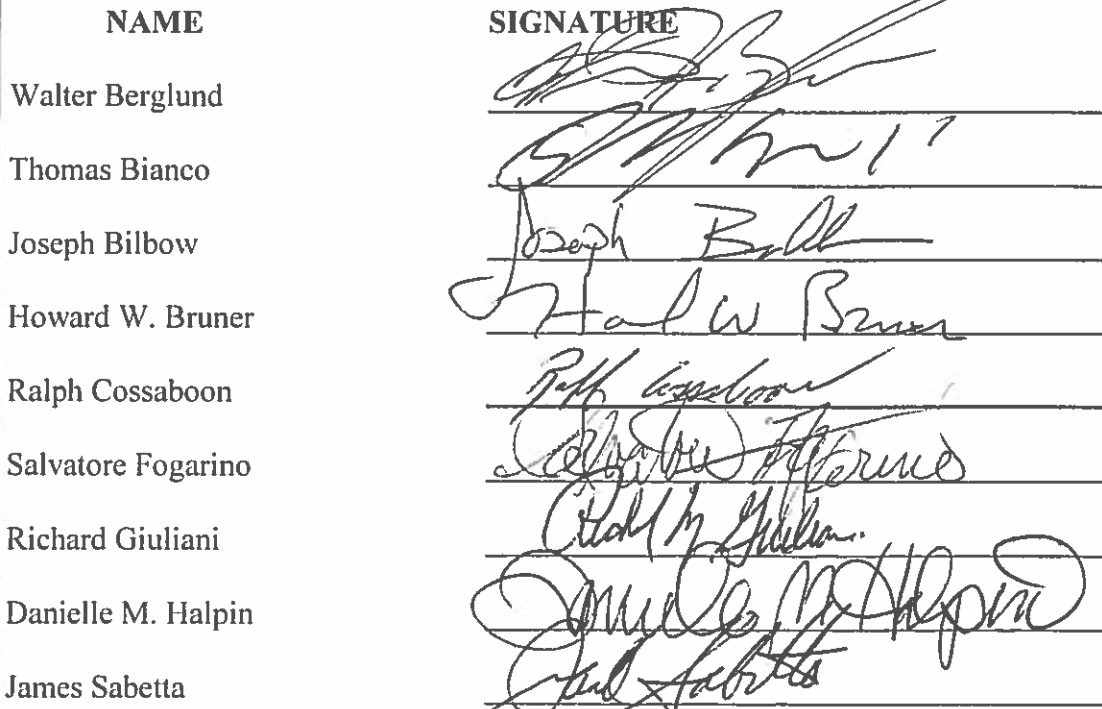 NAME SIGNATURE
Walter Berglund
Thomas Bianco
Joseph Bilbow Joseph
Howard W. Bruner W Bruner
Ralph Cossaboon Ralph Cossaboon
Salvatore Fogarino Salvatore
Richard Giuliani M Giuliani
Danielle M. Halpin Danielle M Halpin
James Sabetta Sabetta